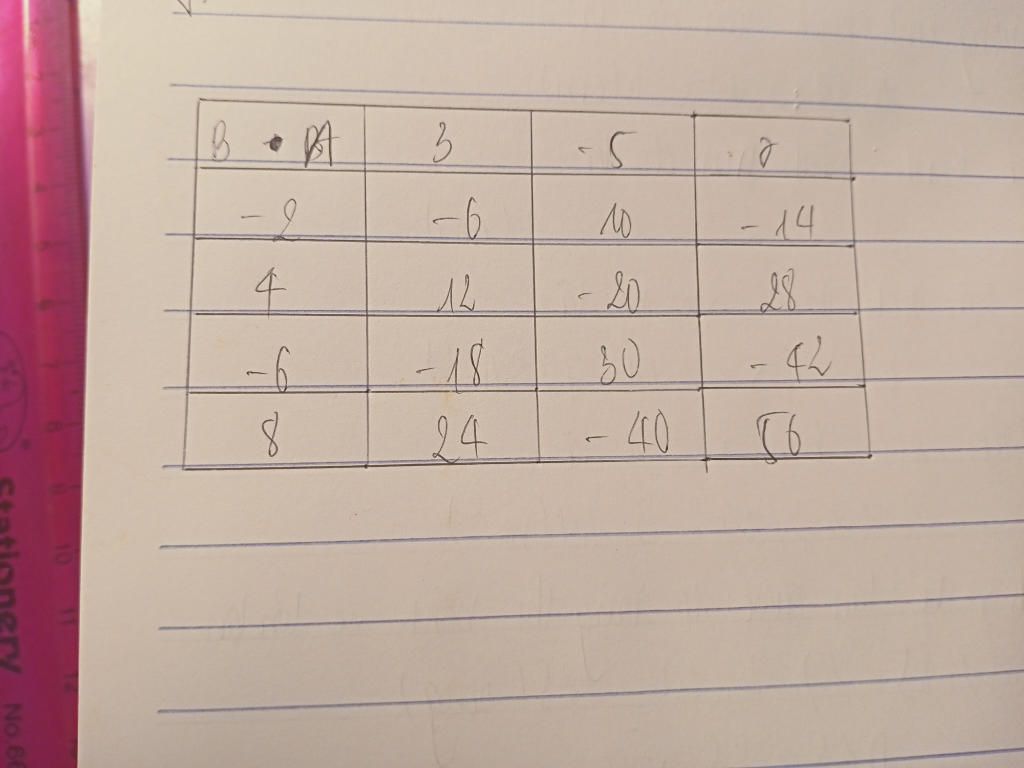 B • A 3 -5 7
-2 -6 10 -14
4 12 -20 28
-6 -18 30 -42
8 24 -40 56
Stationery No.